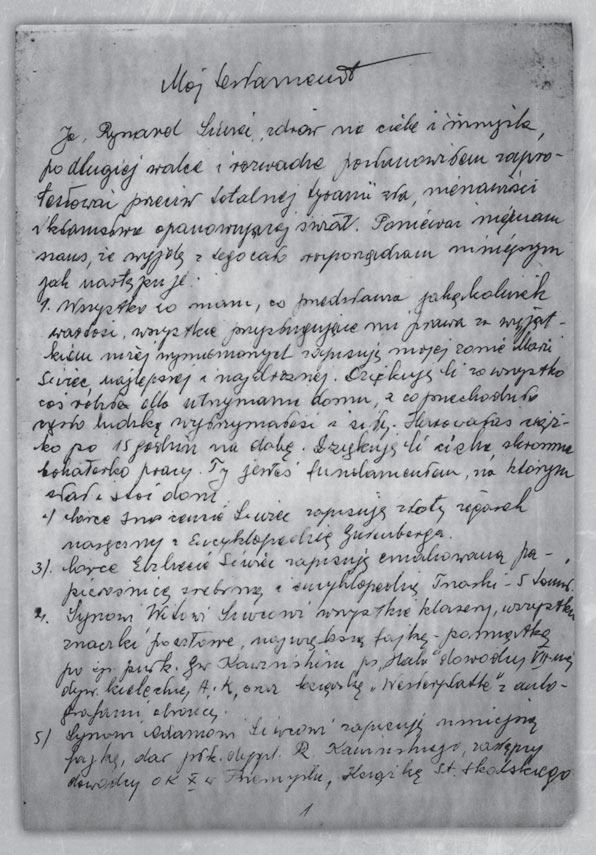 Mój testament
Ja, Ryszard Siwiec, zdrów na ciele i umyśle,
po długiej walce i rozwadze postanowiłem zapro-
testować przeciw totalnej tyranii zła, nienawiści
i kłamstwa opanowującej świat. Ponieważ nie mam
szans, że wyjdę z tego cało rozporządzam niniejszym
jak następuje:
1. Wszystko co mam, co przedstawia jakąkolwiek
wartość, wszystkie przysługujące mi prawa za wyjąt-
kiem niżej wymienionych zapisuję mojej żonie Marii
Siwiec, najlepszej i najdroższej. Dziękuję Ci za wszystko
coś robiła dla utrzymania domu, a co przechodziło
często ludzką wytrzymałość i siłę. Harowałaś cięż-
ko po 15 godzin na dobę. Dziękuję Ci cicha skromna
bohaterko pracy. Ty jesteś fundamentem, na którym
stał i stoi dom.
2) Córce Innocencie Siwiec zapisuję złoty zegarek
naręczny i Encyklopedię Gutenberga.
3). Córce Elżbiecie Siwiec zapisuję emaliowaną pa-
pierośnicę srebrną i encyklopedię Trzaski - 5 tomów.
4. Synowi Witowi Siwcowi wszystkie klasery, wszystkie
znaczki pocztowe, największą fajkę - pamiątkę
po śp. płk. Gw. Kawińskim ps. "Hala" dowódcy VII-mej
dyw. kieleckiej A.K. oraz książkę "Westerplatte" z auto-
grafami obrońców.
5) Synowi Adamowi Siwcowi zapisuję mniejszą
fajkę, dar płk. dypl. Kawińskiego, zastępcy
dowódcy OK X w Przemyślu, książkę St. Skalskiego
1